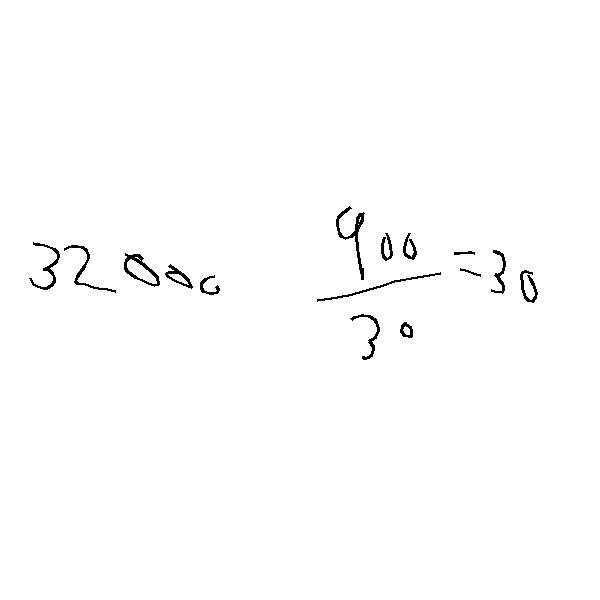 32000 900/30 = 30